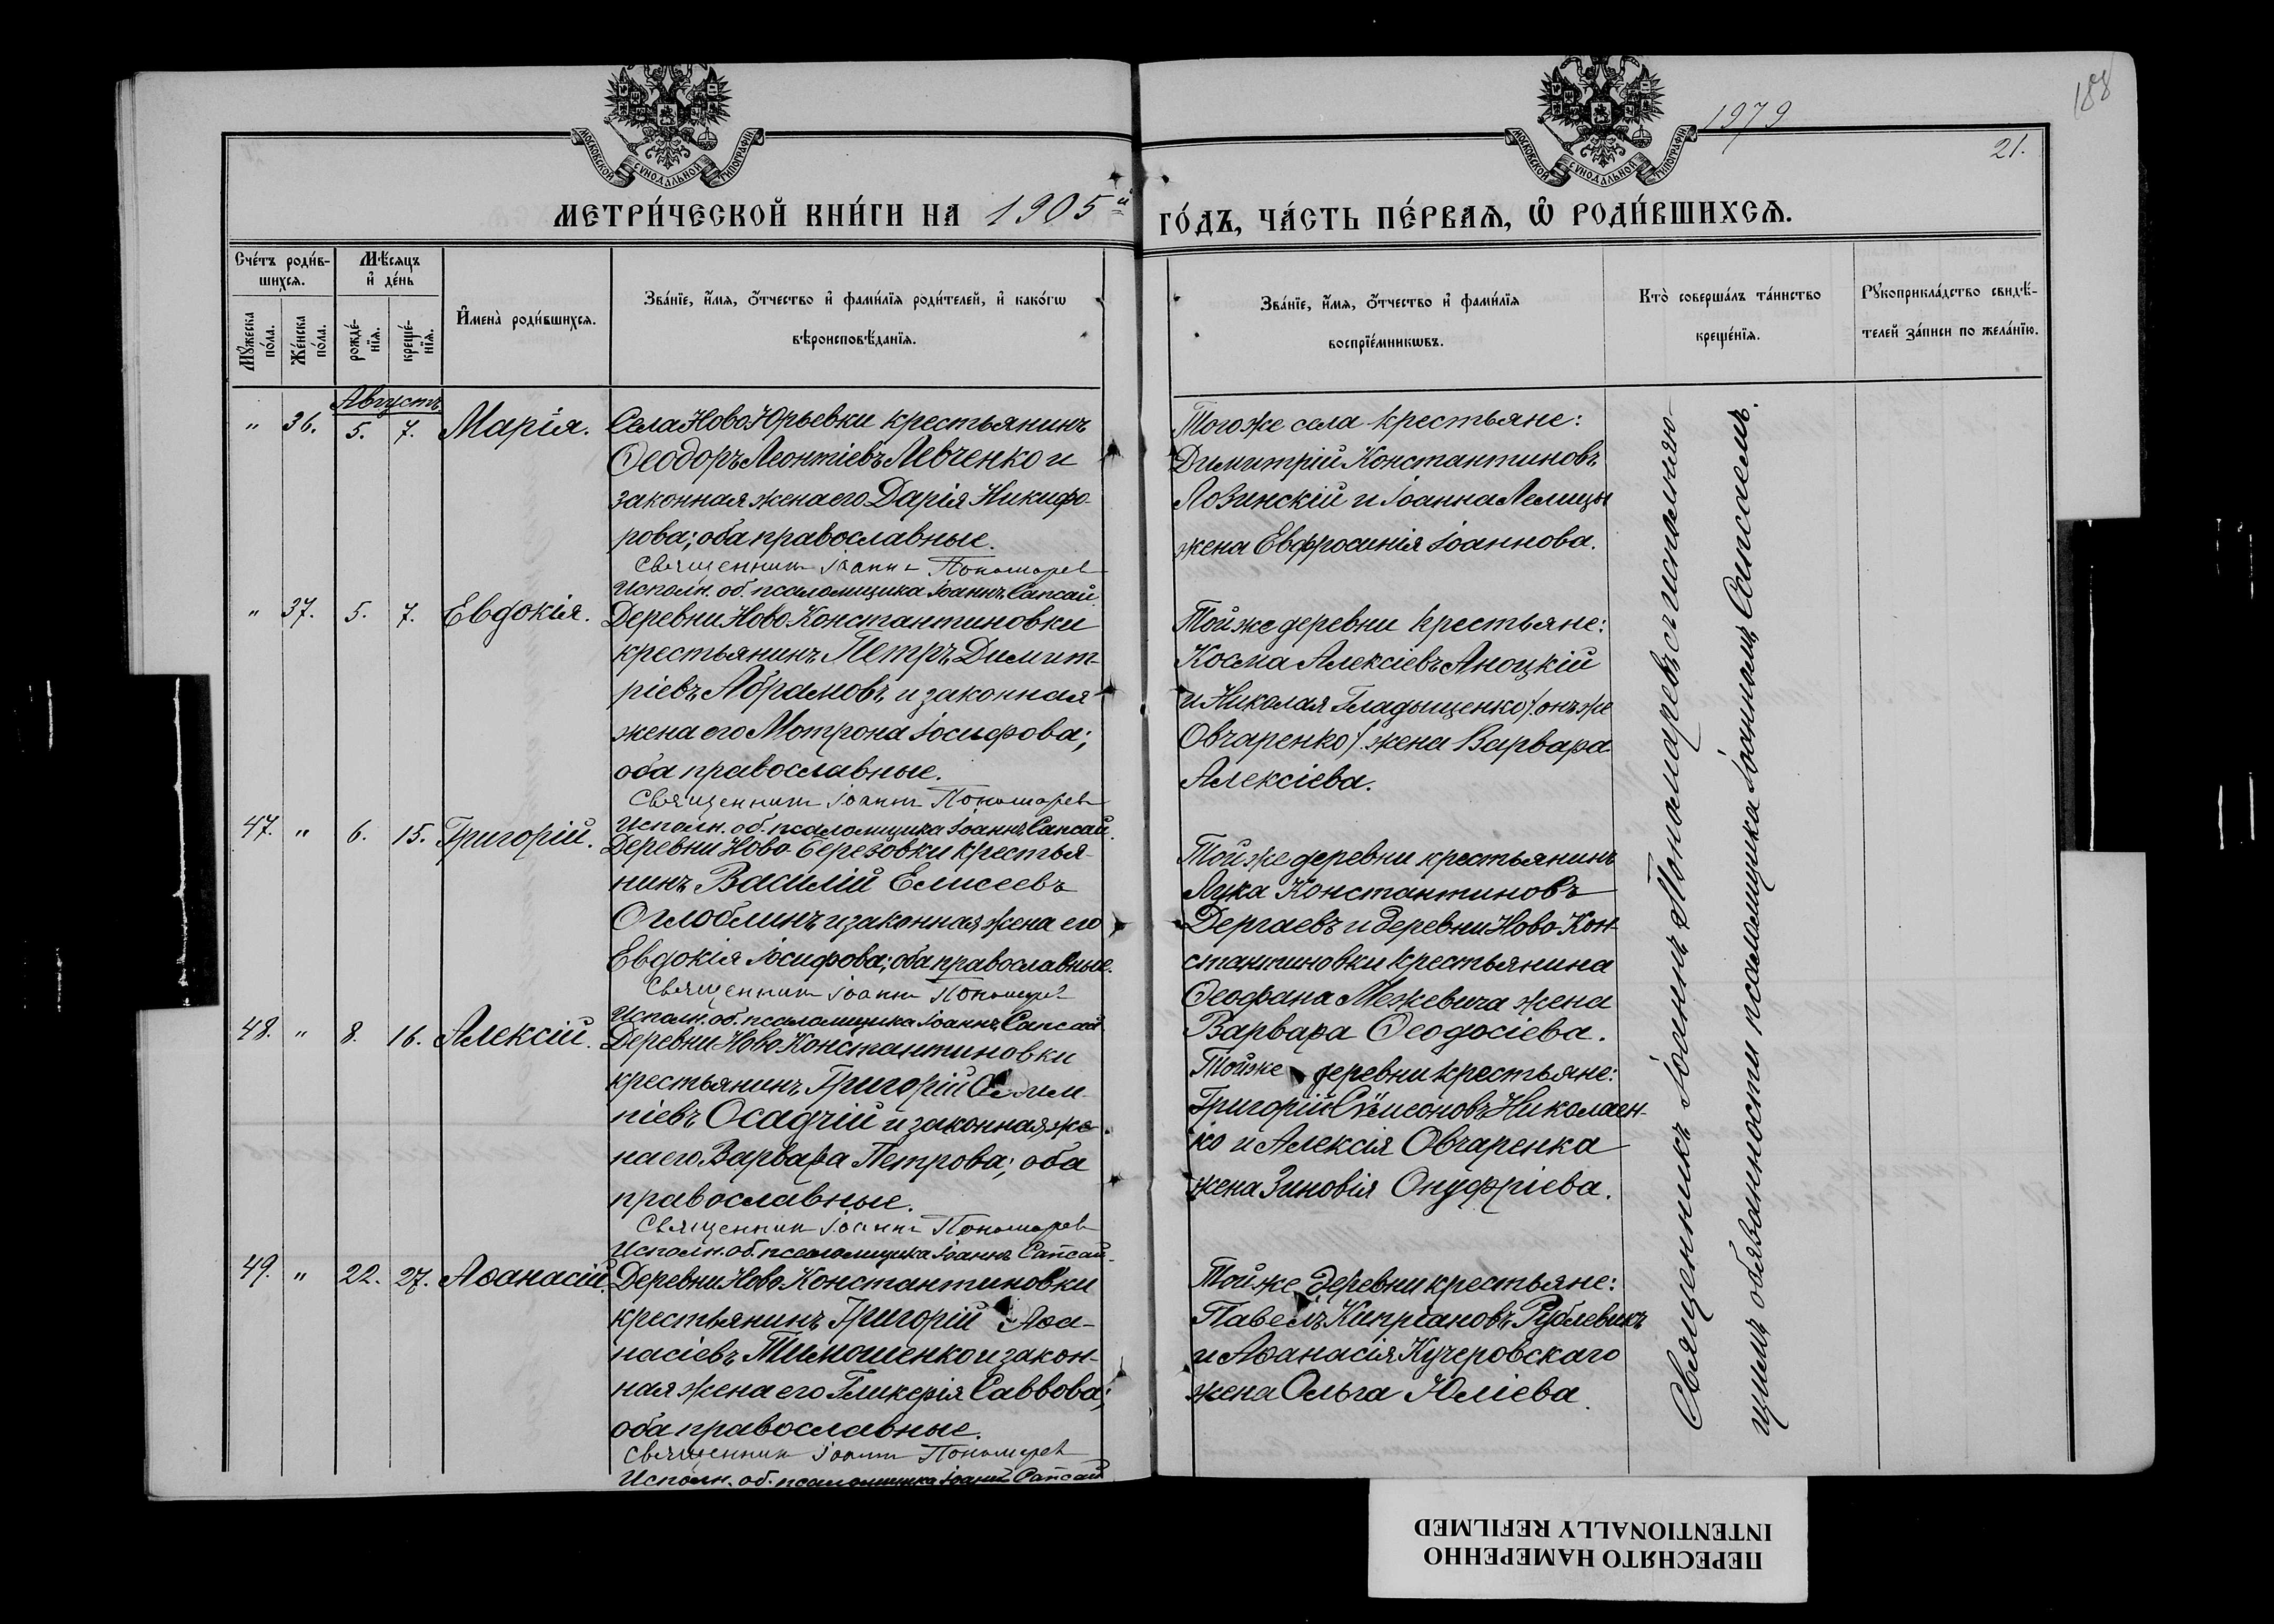 1979
188
21.
МОСКОВСКОЙ СѴНОДАЛЬНОЙ ТИПОГРАФІИ
МОСКОВСКОЙ СѴНОДАЛЬНОЙ ТИПОГРАФІИ
МЕТРИ́ЧЕСКОЙ КНИ́ГИ НА 1905й
ГО́ДЪ, ЧА́СТЬ ПЕ́РВАѦ, Ѽ РОДИ́ВШИХСѦ.
Сче́тъ роди́в-
шихсѧ.
Мѣ́сѧцъ
и҆ де́нь
Мꙋ́жеска
по́ла.
Же́нска
по́ла.
рожде́-
нїѧ.
креще́-
нїѧ.
И҆мена̀ роди́вшихсѧ.
Зва́нїе, и҆́мѧ, ѻ҆́тчество и҆ фами́лїѧ роди́телей, и҆ како́гѡ
вѣроисповѣ́данїѧ.
Зва́нїе, и҆́мѧ, ѻ҆́тчество и҆ фами́лїѧ
воспрїе́мникѡвъ.
Кто̀ соверша́лъ та́инство
креще́нїѧ.
Рꙋкоприкла́дство свидѣ́-
телей за́писи по жела́нїю.
Августъ
" 36. 5. 7. Марія.
Села Ново Юрьевки крестьянинъ
Ѳеодоръ Леонтіевъ Левченко и
законная жена его Дарія Никифо-
рова; оба православные.
Священникъ Іоаннъ Пономарев
Исполн. об. псаломщика Іоаннъ Сапсай
Тогоже села крестьяне:
Димитрій Константиновъ
Лозинскій и Іоанна Лелицы
жена Евфросинія Іоаннова.
" 37. 5. 7. Евдокія.
Деревни Ново Константиновки
крестьянинъ Петръ Димит-
ріевъ Абрамовъ и законная
жена его Мотрона Іосифова;
оба православные.
Священникъ Іоаннъ Пономарев
Исполн. об. псаломщика Іоаннъ Сапсай.
Тойже деревни крестьяне:
Косма Алексіевъ Яноцкій
и Николая Гладыщенко /онъже
Овчаренко/ жена Варвара
Алексіева.
47. " 6. 15. Григорій.
Деревни Ново-Березовки крестья-
нинъ Василій Елисеевъ
Оглоблинъ и законная жена его
Евдокія Іосифова; оба православные.
Священникъ Іоаннъ Пономарев
Исполн. об. псаломщика Іоаннъ Сапсай
Тойже деревни крестьянинъ
Лука Константиновъ
Дергаевъ и деревни Ново-Кон-
стантиновки крестьянина
Ѳеофана Межевича жена
Варвара Ѳеодосіева.
48. " 8. 16. Алексій.
Деревни Ново Константиновки
крестьянинъ Григорій
піевъ Осадчій и законная же-
на его Варвара Петрова; оба
православные.
Священникъ Іоаннъ Пономарев
Исполн. об. псаломщика Іоаннъ Сапсай
Тойже деревни крестьяне:
Григорій Сѷмеоновъ Николаен-
ко и Алексія Овчаренка
жена Зиновія Онуфріева.
49. " 22. 27. Аѳанасій.
Деревни Ново Константиновки
крестьянинъ Григорій Аѳа-
насіевъ Тимошенко и закон-
ная жена его Гликерія Саввова;
оба православные.
Священникъ Іоаннъ Пономарев
Исполн. об. псаломщика Іоаннъ Сапсай
Тойже деревни крестьяне:
Павелъ Кипріановъ Рублевикъ
и Аѳанасія Кучеровскаго
жена Ольга Юліева.
Священникъ Іоаннъ Пономаревъ съ исполняю-
щимъ обязанности псаломщика Іоанномъ Сапсаемъ.
ПЕРЕСНЯТО НАМЕРЕННО
INTENTIONALLY REFILMED